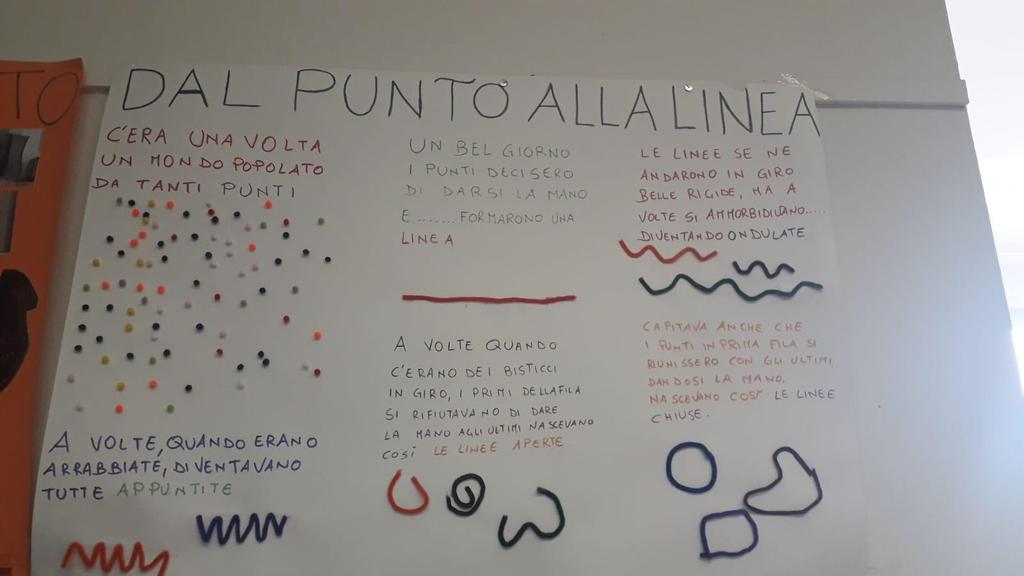 TO
DAL PUNTO ALLA LINEA
C'ERA UNA VOLTA
UN MONDO POPOLATO
DA TANTI PUNTI
UN BEL GIORNO
I PUNTI DECISERO
DI DARSI LA MANO
E........FORMARONO UNA
LINEA
LE LINEE SE NE
ANDARONO IN GIRO
BELLE RIGIDE, MA A
VOLTE SI AMMORBIDIVANO.....
DIVENTANDO ONDULATE
A VOLTE, QUANDO ERANO
ARRABBIATE, DIVENTAVANO
TUTTE APPUNTITE
A VOLTE QUANDO
C'ERANO DEI BISTICCI
IN GIRO, I PRIMI DELLA FILA
SI RIFIUTAVANO DI DARE
LA MANO AGLI ULTIMI NASCEVANO
COSÌ LE LINEE APERTE
CAPITAVA ANCHE CHE
I PUNTI IN PRIMA FILA SI
RIUNISSERO CON GLI ULTIMI,
DANDOSI LA MANO.
NASCEVANO COSÌ LE LINEE
CHIUSE.